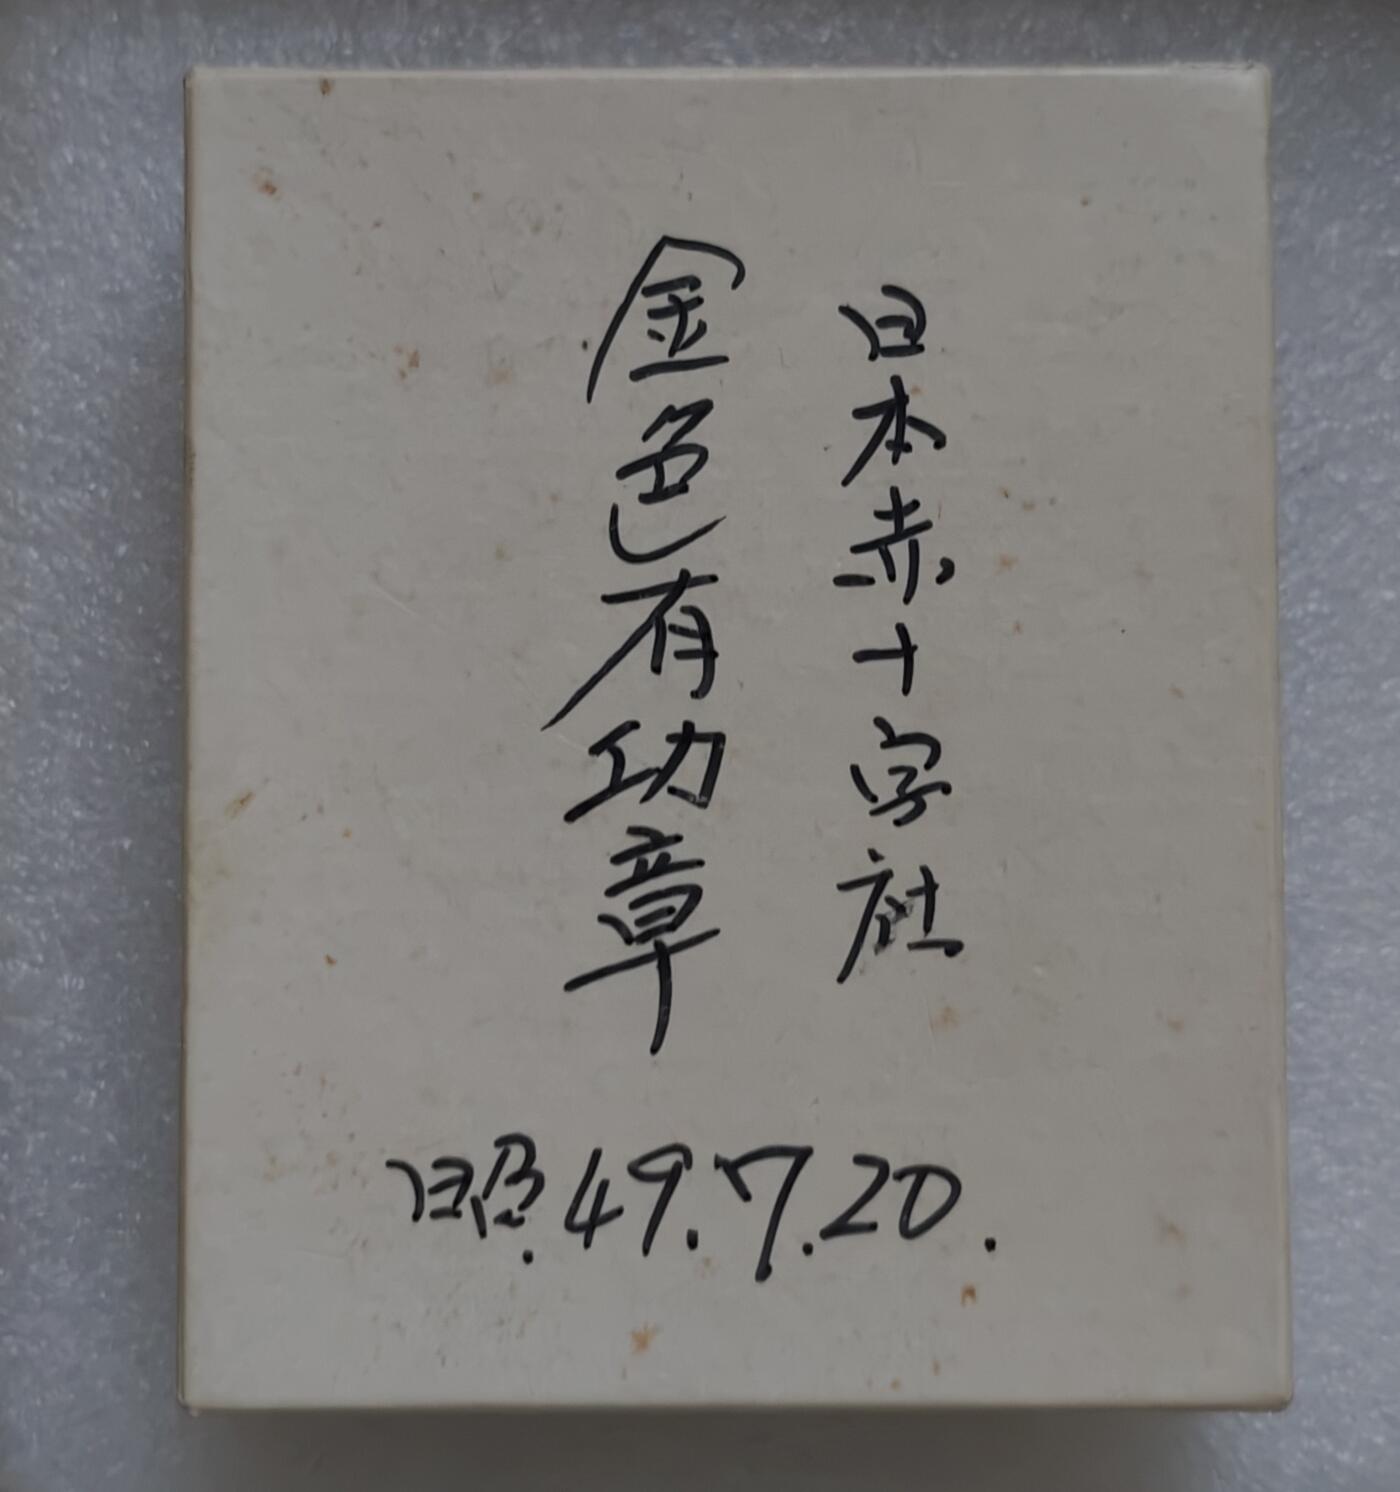 日本赤十字社
金色有功章
昭.49.7.20.